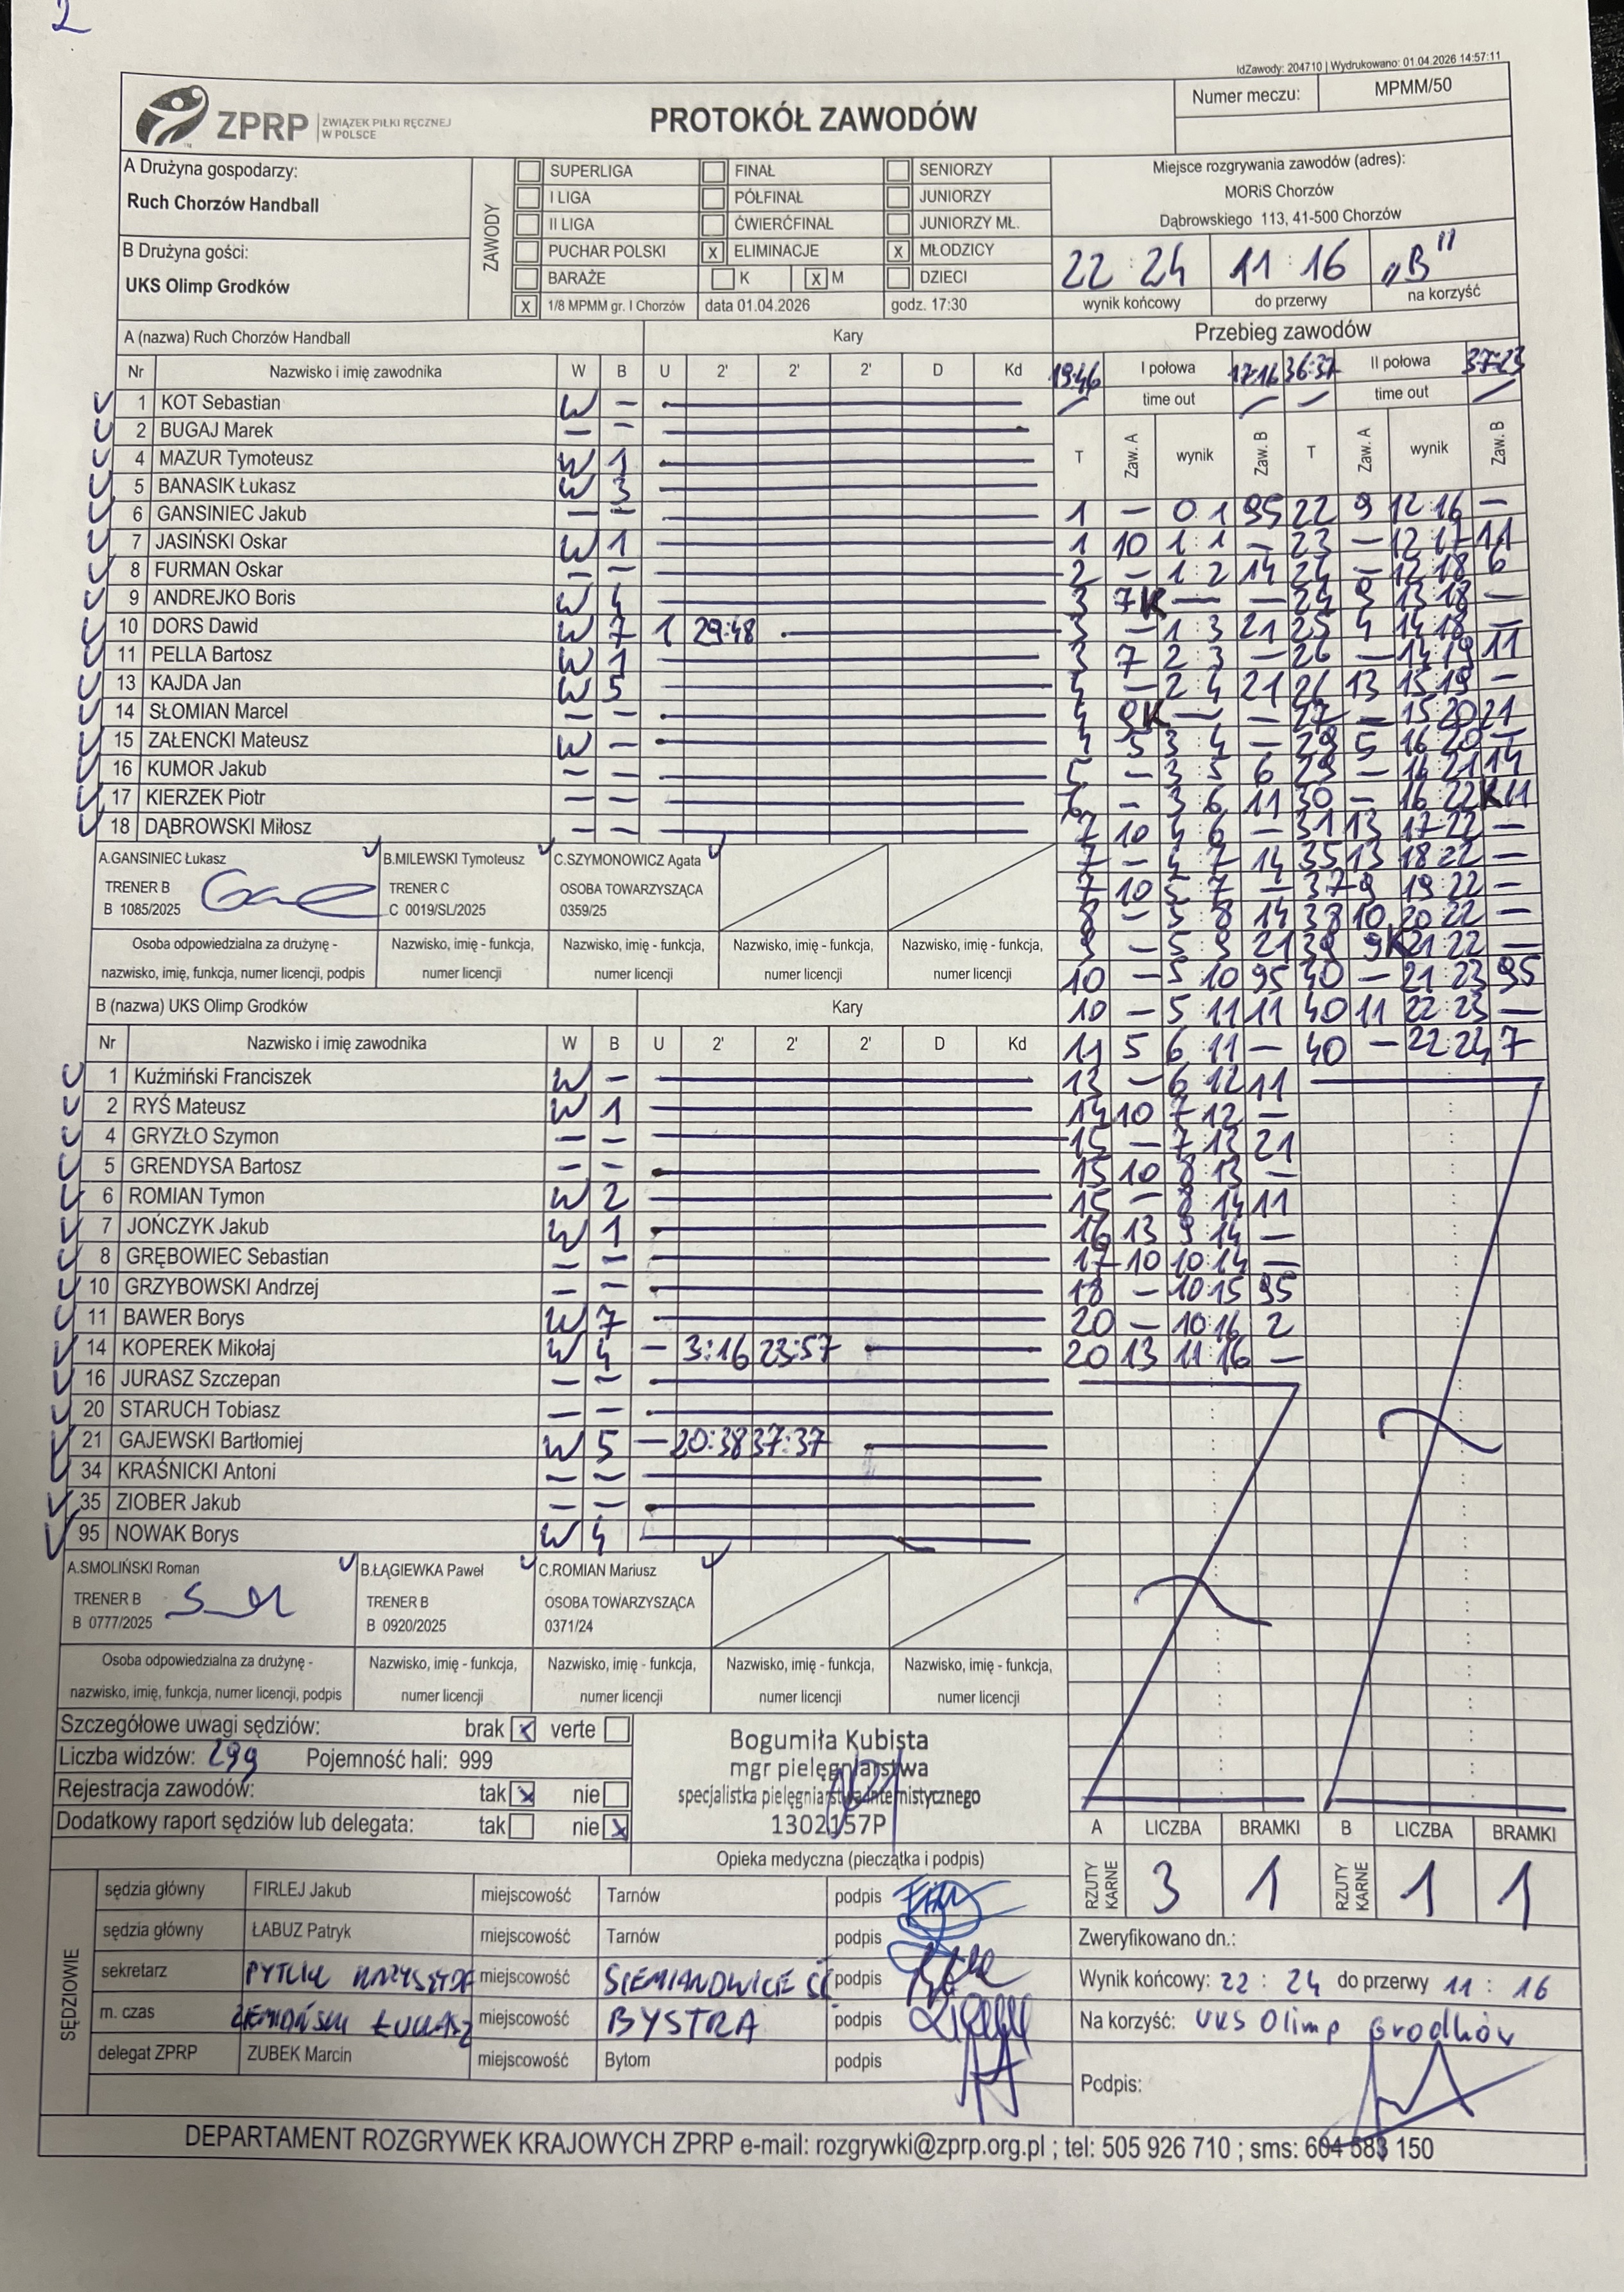 2
IdZawody: 204710 | Wydrukowano: 01.04.2026 14:57:11
ZPRP ZWIĄZEK PIŁKI RĘCZNEJ W POLSCE
PROTOKÓŁ ZAWODÓW
Numer meczu: MPMM/50
A Drużyna gospodarzy:
Ruch Chorzów Handball
B Drużyna gości:
UKS Olimp Grodków
ZAWODY
SUPERLIGA FINAŁ SENIORZY
I LIGA PÓŁFINAŁ JUNIORZY
II LIGA ĆWIERĆFINAŁ JUNIORZY MŁ.
PUCHAR POLSKI X ELIMINACJE X MŁODZICY
BARAŻE K X M DZIECI
X 1/8 MPMM gr. I Chorzów data 01.04.2026 godz. 17:30
Miejsce rozgrywania zawodów (adres):
MORiS Chorzów
Dąbrowskiego 113, 41-500 Chorzów
22 : 24 11 : 16 „B"
wynik końcowy do przerwy na korzyść
A (nazwa) Ruch Chorzów Handball Kary
Nr Nazwisko i imię zawodnika W B U 2' 2' 2' D Kd
1 KOT Sebastian W –
2 BUGAJ Marek – –
4 MAZUR Tymoteusz W 1
5 BANASIK Łukasz W 3
6 GANSINIEC Jakub – –
7 JASIŃSKI Oskar W 1
8 FURMAN Oskar – –
9 ANDREJKO Boris W 4
10 DORS Dawid W 7 1 29:48
11 PELLA Bartosz W 1
13 KAJDA Jan W 5
14 SŁOMIAN Marcel – –
15 ZAŁENCKI Mateusz W –
16 KUMOR Jakub – –
17 KIERZEK Piotr – –
18 DĄBROWSKI Miłosz – –
A.GANSINIEC Łukasz B.MILEWSKI Tymoteusz C.SZYMONOWICZ Agata
TRENER B TRENER C OSOBA TOWARZYSZĄCA
B 1085/2025 C 0019/SL/2025 0359/25
Osoba odpowiedzialna za drużynę - Nazwisko, imię - funkcja, Nazwisko, imię - funkcja, Nazwisko, imię - funkcja, Nazwisko, imię - funkcja,
nazwisko, imię, funkcja, numer licencji, podpis numer licencji numer licencji numer licencji numer licencji
B (nazwa) UKS Olimp Grodków Kary
Nr Nazwisko i imię zawodnika W B U 2' 2' 2' D Kd
1 Kuźmiński Franciszek W –
2 RYŚ Mateusz W 1
4 GRYZŁO Szymon – –
5 GRENDYSA Bartosz – –
6 ROMIAN Tymon W 2
7 JOŃCZYK Jakub W 1
8 GRĘBOWIEC Sebastian – –
10 GRZYBOWSKI Andrzej – –
11 BAWER Borys W 7
14 KOPEREK Mikołaj W 4 – 3:16 23:57
16 JURASZ Szczepan – –
20 STARUCH Tobiasz – –
21 GAJEWSKI Bartłomiej W 5 – 20:38 37:37
34 KRAŚNICKI Antoni – –
35 ZIOBER Jakub – –
95 NOWAK Borys W 4
A.SMOLIŃSKI Roman B.ŁĄGIEWKA Paweł C.ROMIAN Mariusz
TRENER B TRENER B OSOBA TOWARZYSZĄCA
B 0777/2025 B 0920/2025 0371/24
Osoba odpowiedzialna za drużynę - Nazwisko, imię - funkcja, Nazwisko, imię - funkcja, Nazwisko, imię - funkcja, Nazwisko, imię - funkcja,
nazwisko, imię, funkcja, numer licencji, podpis numer licencji numer licencji numer licencji numer licencji
Przebieg zawodów
19:46 I połowa 17:16 36:37 II połowa 37:23
time out time out
T Zaw. A wynik Zaw. B T Zaw. A wynik Zaw. B
1 – 0:1 95 22 9 12:16 –
1 10 1:1 – 23 – 12:17 11
2 – 1:2 14 24 – 12:18 6
3 7K – – 24 9 13:18 –
3 – 1:3 21 25 4 14:18 –
3 7 2:3 – 26 – 14:19 11
4 – 2:4 21 26 13 15:19 –
4 9K – – 27 – 15:20 21
4 5 3:4 – 29 5 16:20 –
5 – 3:5 6 29 – 16:21 14
6 – 3:6 11 30 – 16:22 K11
7 10 4:6 – 31 13 17:22 –
7 – 4:7 14 35 13 18:22 –
7 10 5:7 – 37 9 19:22 –
8 – 5:8 14 38 10 20:22 –
9 – 5:9 21 39 9K 21:22 –
10 – 5:10 95 40 – 21:23 95
10 – 5:11 11 40 11 22:23 –
11 5 6:11 – 40 – 22:24 7
13 – 6:12 11
14 10 7:12 –
15 – 7:13 21
15 10 8:13 –
15 – 8:14 11
16 13 9:14 –
17 10 10:14 –
18 – 10:15 95
20 – 10:16 2
20 13 11:16 –
Szczegółowe uwagi sędziów: brak x verte
Liczba widzów: 299 Pojemność hali: 999
Rejestracja zawodów: tak x nie
Dodatkowy raport sędziów lub delegata: tak nie x
Bogumiła Kubista
mgr pielęgniarstwa
specjalistka pielęgniarstwa internistycznego
1302157P
Opieka medyczna (pieczątka i podpis)
A LICZBA BRAMKI B LICZBA BRAMKI
RZUTY KARNE 3 1 RZUTY KARNE 1 1
SĘDZIOWIE
sędzia główny FIRLEJ Jakub miejscowość Tarnów podpis
sędzia główny ŁABUZ Patryk miejscowość Tarnów podpis
sekretarz PYTLIK miejscowość SIEMIANOWICE ŚL podpis
m. czas ŁUKASZ miejscowość BYSTRA podpis
delegat ZPRP ZUBEK Marcin miejscowość Bytom podpis
Zweryfikowano dn.:
Wynik końcowy: 22 : 24 do przerwy 11 : 16
Na korzyść: UKS Olimp Grodków
Podpis:
DEPARTAMENT ROZGRYWEK KRAJOWYCH ZPRP e-mail: rozgrywki@zprp.org.pl ; tel: 505 926 710 ; sms: 604 583 150